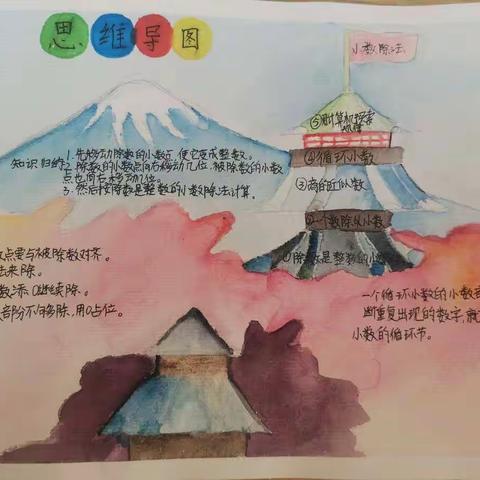 思维导图
小数除法
⑤用计算机探索规律
④循环小数
③商的近似数
②一个数除以小数
①除数是整数的小
知识归纳
1.先移动除数的小数点,使它变成整数。
2.除数的小数点向右移动几位,被除数的小数
点也向右移动几位。
3.然后按除数是整数的小数除法计算。
点要与被除数对齐。
法来除。
数,添0继续除。
部分不够除,用0占位。
一个循环小数的小数
断重复出现的数字,就
小数的循环节。